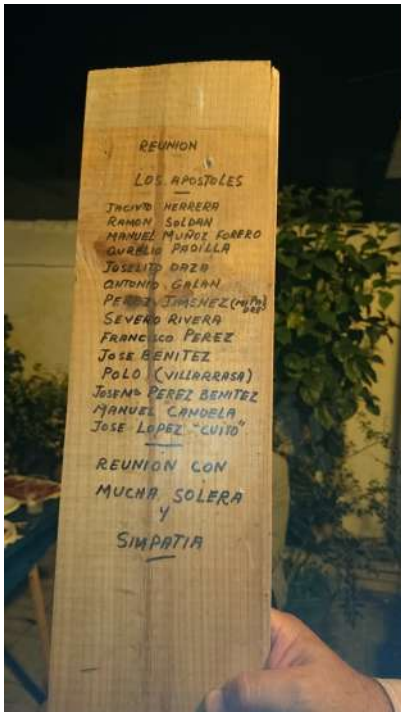 REUNION
LOS APOSTOLES
JACINTO HERRERA
RAMON SOLDAN
MANUEL MUÑOZ FORERO
AURELIO PADILLA
JOSELITO DAZA
ANTONIO GALAN
PEROZ JIMENEZ (MI PADRE)
SEVERO RIVERA
FRANCISCO PEREZ
JOSE BENITEZ
POLO (VILLARRASA)
JOSEMª PEREZ BENITEZ
MANUEL CANDELA
JOSE LOPEZ "CUITO"
REUNION CON
MUCHA SOLERA
Y
SIMPATIA